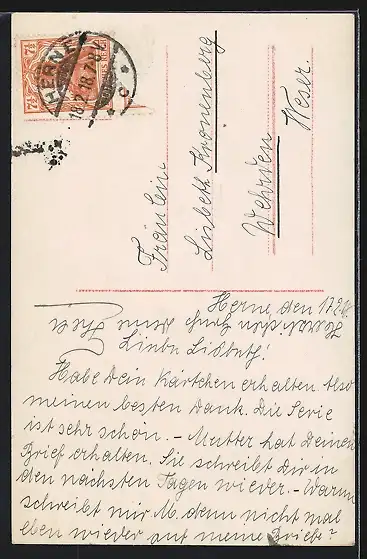 HERNE
18.2.18.7-8V.
* c
7½ 7½
Fräulein
Lisbeth Kronenberg
Wehrden
Weser.
Herne, den 17.2.18.
Herzlichen Gruß deine
Liebe Lisbeth!
Habe Dein Kärtchen erhalten. Also
meinen besten Dank. Die Serie
ist sehr schön. - Mutter hat Deinen
Brief erhalten. Sie schreibt Dir in
den nächsten Tagen wieder. - Warum
schreibt mir M. denn nicht mal
eben wieder auf meine Briefe?